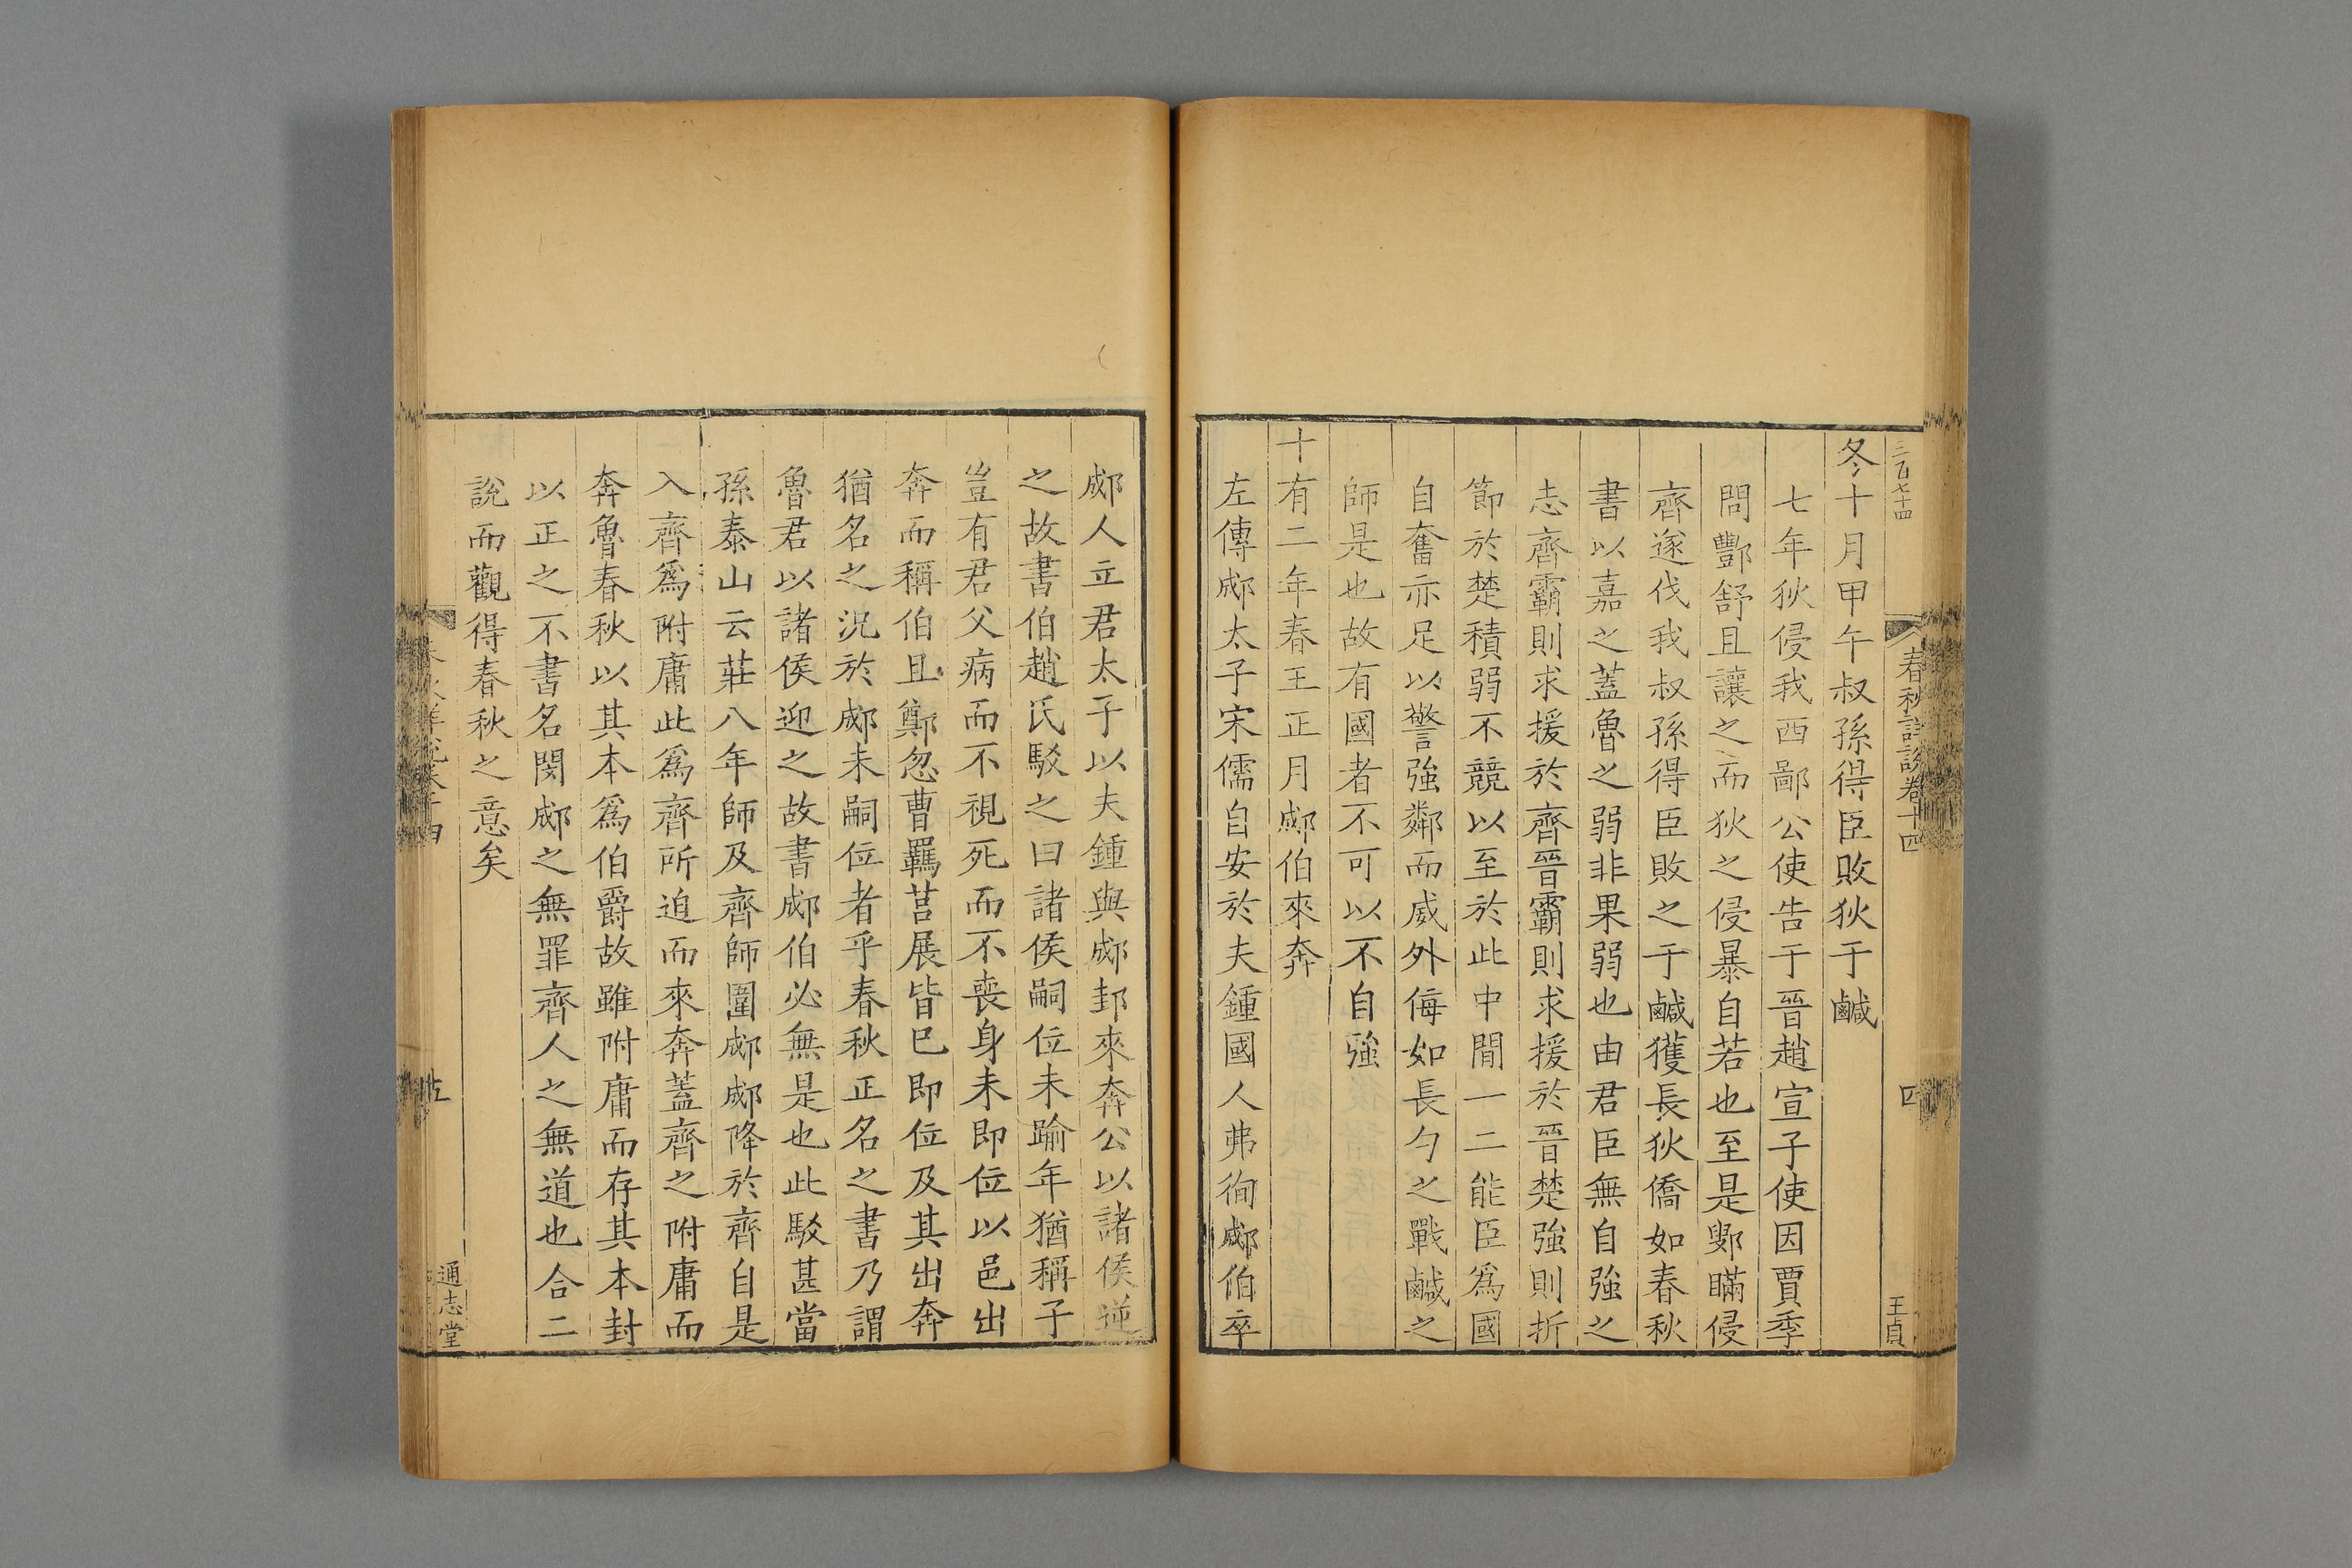 三百七十四
春秋詳說卷十四
四
王貞
冬十月甲午叔孫得臣敗狄于鹹
七年狄侵我西鄙公使告于晉趙宣子使因賈季
問酆舒且讓之而狄之侵暴自若也至是鄋瞞侵
齊遂伐我叔孫得臣敗之于鹹獲長狄僑如春秋
書以嘉之蓋魯之弱非果弱也由君臣無自強之
志齊霸則求援於齊晉霸則求援於晉楚強則折
節於楚積弱不競以至於此中間一二能臣為國
自奮亦足以警強鄰而威外侮如長勺之戰鹹之
師是也故有國者不可以不自強
十有二年春王正月郕伯來奔
左傳郕太子宋儒自安於夫鍾國人弗徇郕伯卒
郕人立君太子以夫鍾與郕邽來奔公以諸侯逆
之故書伯趙氏駁之曰諸侯嗣位未踰年猶稱子
豈有君父病而不視死而不喪身未即位以邑出
奔而稱伯且鄭忽曹羈莒展皆已即位及其出奔
猶名之況於郕未嗣位者乎春秋正名之書乃謂
魯君以諸侯迎之故書郕伯必無是也此駁甚當
孫泰山云莊八年師及齊師圍郕郕降於齊自是
入齊為附庸此為齊所迫而來奔蓋齊之附庸而
奔魯春秋以其本為伯爵故雖附庸而存其本封
以正之不書名閔郕之無罪齊人之無道也合二
說而觀得春秋之意矣
通志堂